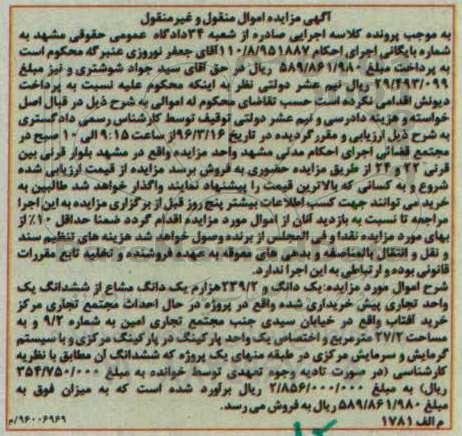 آگهی مزایده اموال منقول و غیرمنقول
به موجب پرونده کلاسه اجرایی صادره از شعبه ۳۴دادگاه عمومی حقوقی مشهد به
شماره بایگانی اجرای احکام ۱۱۰/۸/۹۵۱۸۸۷آقای جعفر نوروزی عنبرگه محکوم است
به پرداخت مبلغ ۵۸۹/۸۶۱/۹۸۰ ریال در حق آقای سید جواد شوشتری و نیز مبلغ
۲۹/۴۹۳/۰۹۹ ریال نیم عشر دولتی نظر به اینکه محکوم علیه نسبت به پرداخت
دیونش اقدامی نکرده است حسب تقاضای محکوم له اموالی به شرح ذیل در قبال اصل
خواسته و هزینه دادرسی و نیم عشر دولتی توقیف توسط کارشناس رسمی دادگستری
به شرح ذیل ارزیابی و مقرر گردیده در تاریخ ۹۶/۳/۱۶از ساعت ۹:۱۵ الی ۱۰ صبح در
مجتمع قضائی اجرای احکام مدنی مشهد واحد مزایده واقع در مشهد بلوار قرنی بین
قرنی ۲۲ و ۲۴ از طریق مزایده حضوری به فروش برسد مزایده از قیمت ارزیابی شده
شروع و به کسانی که بالاترین قیمت را پیشنهاد نمایند واگذار خواهد شد طالبین به
خرید می توانند جهت کسب اطلاعات بیشتر پنج روز قبل از برگزاری مزایده به این اجرا
مراجعه تا نسبت به بازدید آنان از اموال مورد مزایده اقدام گردد ضمنا حداقل ۱۰٪ از
بهای مورد مزایده نقدا و فی المجلس از برنده وصول خواهد شد هزینه های تنظیم سند
و نقل و انتقال بالمناصفه و بدهی های معوقه به عهده فروشنده و تخلیه تابع مقررات
قانونی بوده و ارتباطی به این اجرا ندارد.
شرح اموال مورد مزایده: یک دانگ و ۲۳۹/۲هزارم یک دانگ مشاع از ششدانگ یک
واحد تجاری پیش خریداری شده واقع در پروژه در حال احداث مجتمع تجاری مرکز
خرید آفتاب واقع در خیابان سیدی جنب مجتمع تجاری امین به شماره ۹/۲ و به
مساحت ۲۷/۲ مترمربع و اختصاص یک واحد پارکینگ در پارکینگ مرکزی و با سیستم
گرمایش و سرمایش مرکزی در طبقه منهای یک پروژه که ششدانگ آن مطابق با نظریه
کارشناسی (در صورت تادیه وجوه تعهدی توسط خوانده به مبلغ ۳۵۴/۷۵۰/۰۰۰
ریال) به مبلغ ۲/۸۵۶/۰۰۰/۰۰۰ ریال برآورد شده است که به میزان فوق به
مبلغ ۵۸۹/۸۶۱/۹۸۰ ریال به فروش می رسد.
م الف ۱۷۸۱
۹۶۰۰۶۹۶۹/م